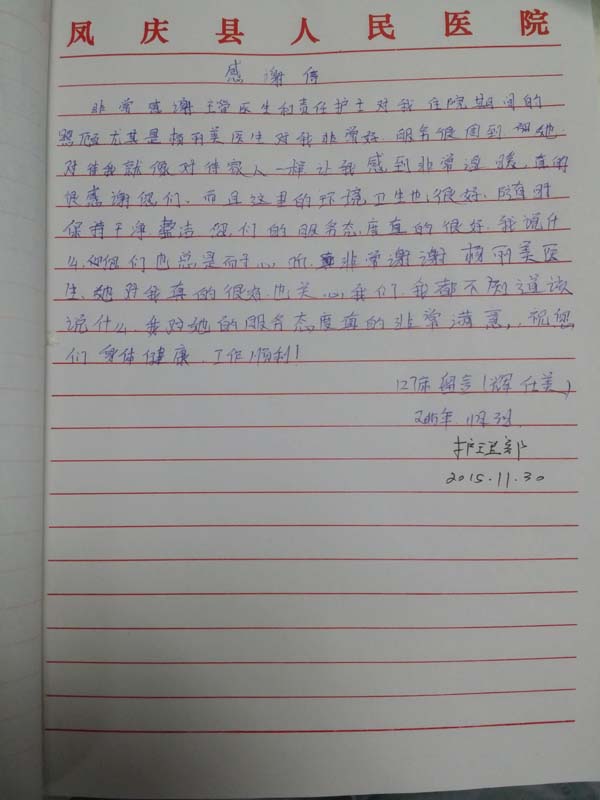 凤庆县人民医院
感谢信
非常感谢主管医生和责任护士对我住院期间的
照顾尤其是杨丽美医生对我非常好.服务很周到.她
对待我就像对待家人一样让我感到非常温暖,真的
很感谢您们.而且这里的环境卫生也很好.随时
保持干净整洁.您们的服务态度真的很好.我说什
么您们也总是耐心听,非常谢谢杨丽美医
生.她对我真的很好.也关心我们.我都不知道该
说什么.我对她的服务态度真的非常满意,祝您
们身体健康.工作顺利!
127床留言(辉仕美)
2015年11月30日
护理部
2015.11.30